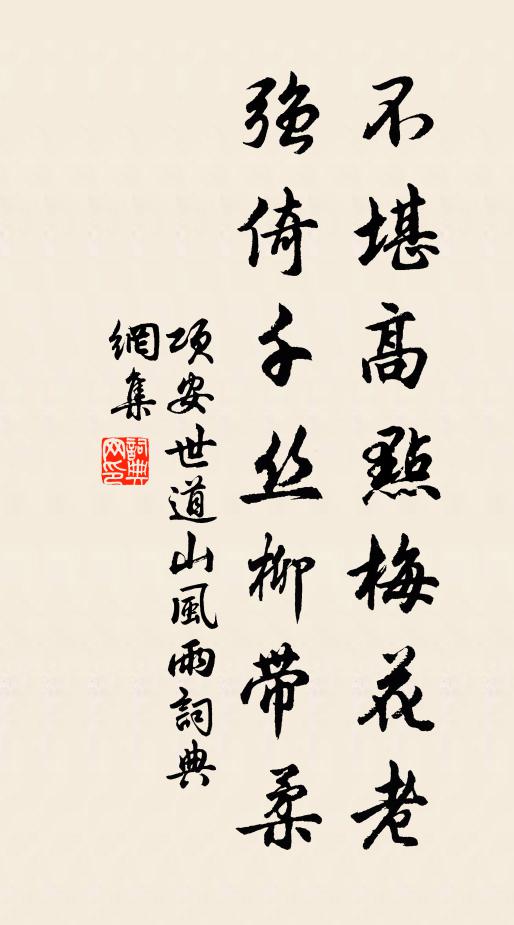 不堪高點梅花老
強倚千丝柳帶柔
項安世道山風雨詞典
網集
詞典網印